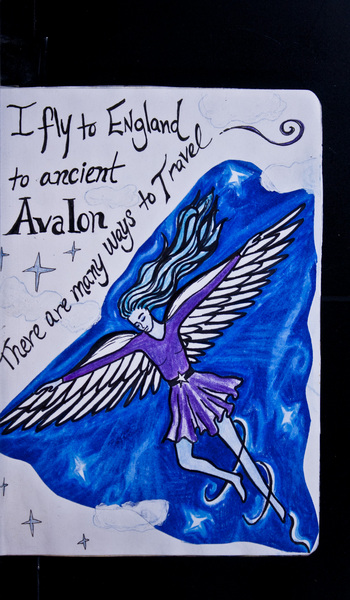 I fly to England
to ancient
Avalon
There are many ways to Travel